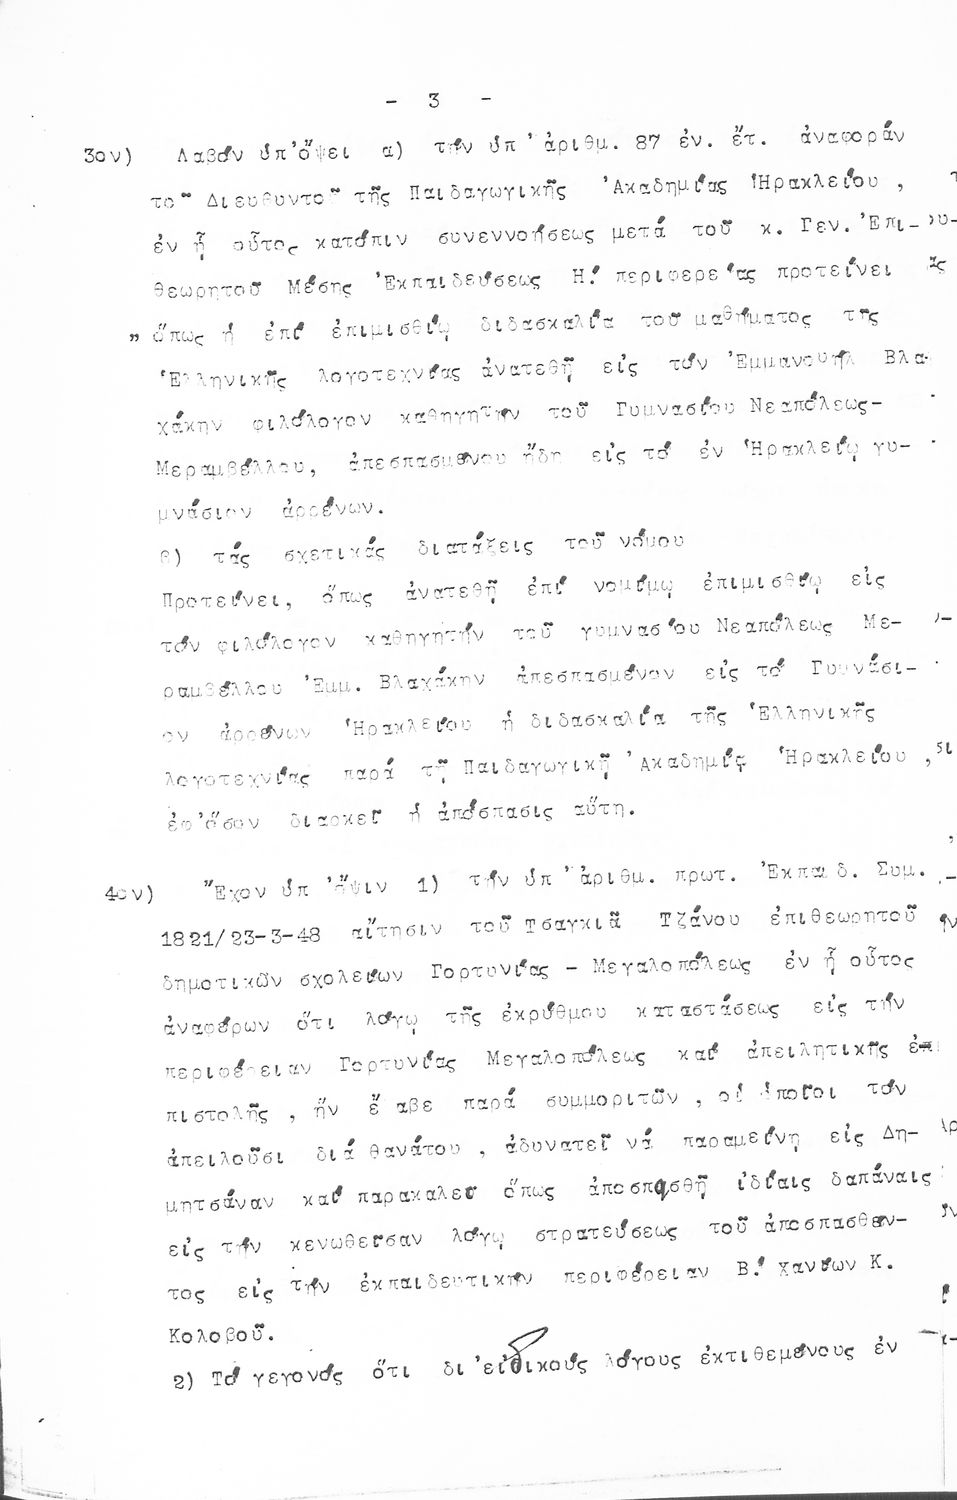 - 3 -
3ον) Λαβόν ὑπ'ὄψει α) τήν ὑπ'ἀριθμ. 87 ἐν. ἔτ. ἀναφοράν
τοῦ Διευθυντοῦ τῆς Παιδαγωγικῆς Ἀκαδημίας Ἡρακλείου ,
ἐν ᾗ οὗτος κατόπιν συνεννοήσεως μετά τοῦ κ. Γεν. Ἐπι-
θεωρητοῦ Μέσης Ἐκπαιδεύσεως Η! περιφερείας προτείνει
" ὅπως ἡ ἐπί ἐπιμισθίῳ διδασκαλία τοῦ μαθήματος τῆς
Ἑλληνικῆς λογοτεχνίας ἀνατεθῇ εἰς τόν Ἐμμανουήλ Βλα-
χάκην φιλόλογον καθηγητήν τοῦ Γυμνασίου Νεαπόλεως-
Μεραμβέλλου, ἀπεσπασμένου ἤδη εἰς τό ἐν Ἡρακλείῳ γυ-
μνάσιον ἀρρένων.
β) τάς σχετικάς διατάξεις τοῦ νόμου
Προτείνει, ὅπως ἀνατεθῇ ἐπί νομίμῳ ἐπιμισθίῳ εἰς
τόν φιλόλογον καθηγητήν τοῦ γυμνασίου Νεαπόλεως Με-
ραμβέλλου Ἐμμ. Βλαχάκην ἀπεσπασμένον εἰς τό Γυμνάσι-
ον ἀρρένων Ἡρακλείου ἡ διδασκαλία τῆς Ἑλληνικῆς
λογοτεχνίας παρά τῇ Παιδαγωγικῇ Ἀκαδημίᾳ Ἡρακλείου ,
ἐφ'ὅσον διαρκεῖ ἡ ἀπόσπασις αὕτη.
4ον) Ἔχον ὑπ'ὄψιν 1) τήν ὑπ'ἀριθμ. πρωτ. Ἐκπαιδ. Συμ.
1821/23-3-48 αἴτησιν τοῦ Τσαγκιᾶ Τζάνου ἐπιθεωρητοῦ
δημοτικῶν σχολείων Γορτυνίας - Μεγαλοπόλεως ἐν ᾗ οὗτος
ἀναφέρων ὅτι λόγῳ τῆς ἐκρύθμου καταστάσεως εἰς τήν
περιφέρειαν Γορτυνίας Μεγαλοπόλεως καί ἀπειλητικῆς ἐπι
πιστολῆς , ἥν ἔλαβε παρά συμμοριτῶν , οἱ ὁποῖοι τόν
ἀπειλοῦσι διά θανάτου , ἀδυνατεῖ νά παραμείνῃ εἰς Δη-
μητσάναν καί παρακαλεῖ ὅπως ἀποσπασθῇ ἰδίαις δαπάναις
εἰς τήν κενωθεῖσαν λόγῳ στρατεύσεως τοῦ ἀποσπασθέν-
τος εἰς τήν ἐκπαιδευτικήν περιφέρειαν Β! Χανίων Κ.
Κολοβοῦ.
2) Τό γεγονός ὅτι δι'εἰδικούς λόγους ἐκτιθεμένους ἐν